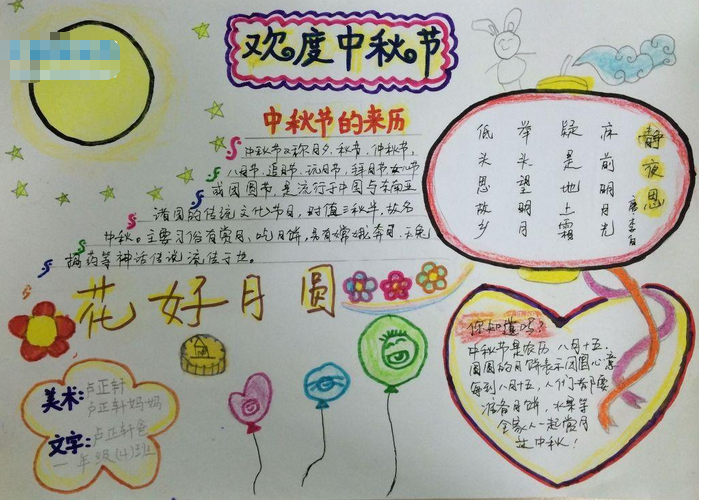 欢度中秋节
中秋节的来历
中秋节又称月夕、秋节、仲秋节、
八月节、追月节、玩月节、拜月节、女儿节
或团圆节、是流行于中国与东南亚
诸国的传统文化节日,时值三秋半,故名
中秋。主要习俗有赏月、吃月饼、另有嫦娥奔月、玉兔
捣药等神话传说流传于世。
静夜思
唐 李白
床前明月光
疑是地上霜
举头望明月
低头思故乡
花好月圆
你知道吗?
中秋节是农历八月十五.
圆圆的月饼表示团圆心意
每到八月十五,人们都要
准备月饼,水果等
全家人一起赏月
过中秋!
美术:卢正轩
卢正轩妈妈
文字:卢正轩爸
一年级(4)班